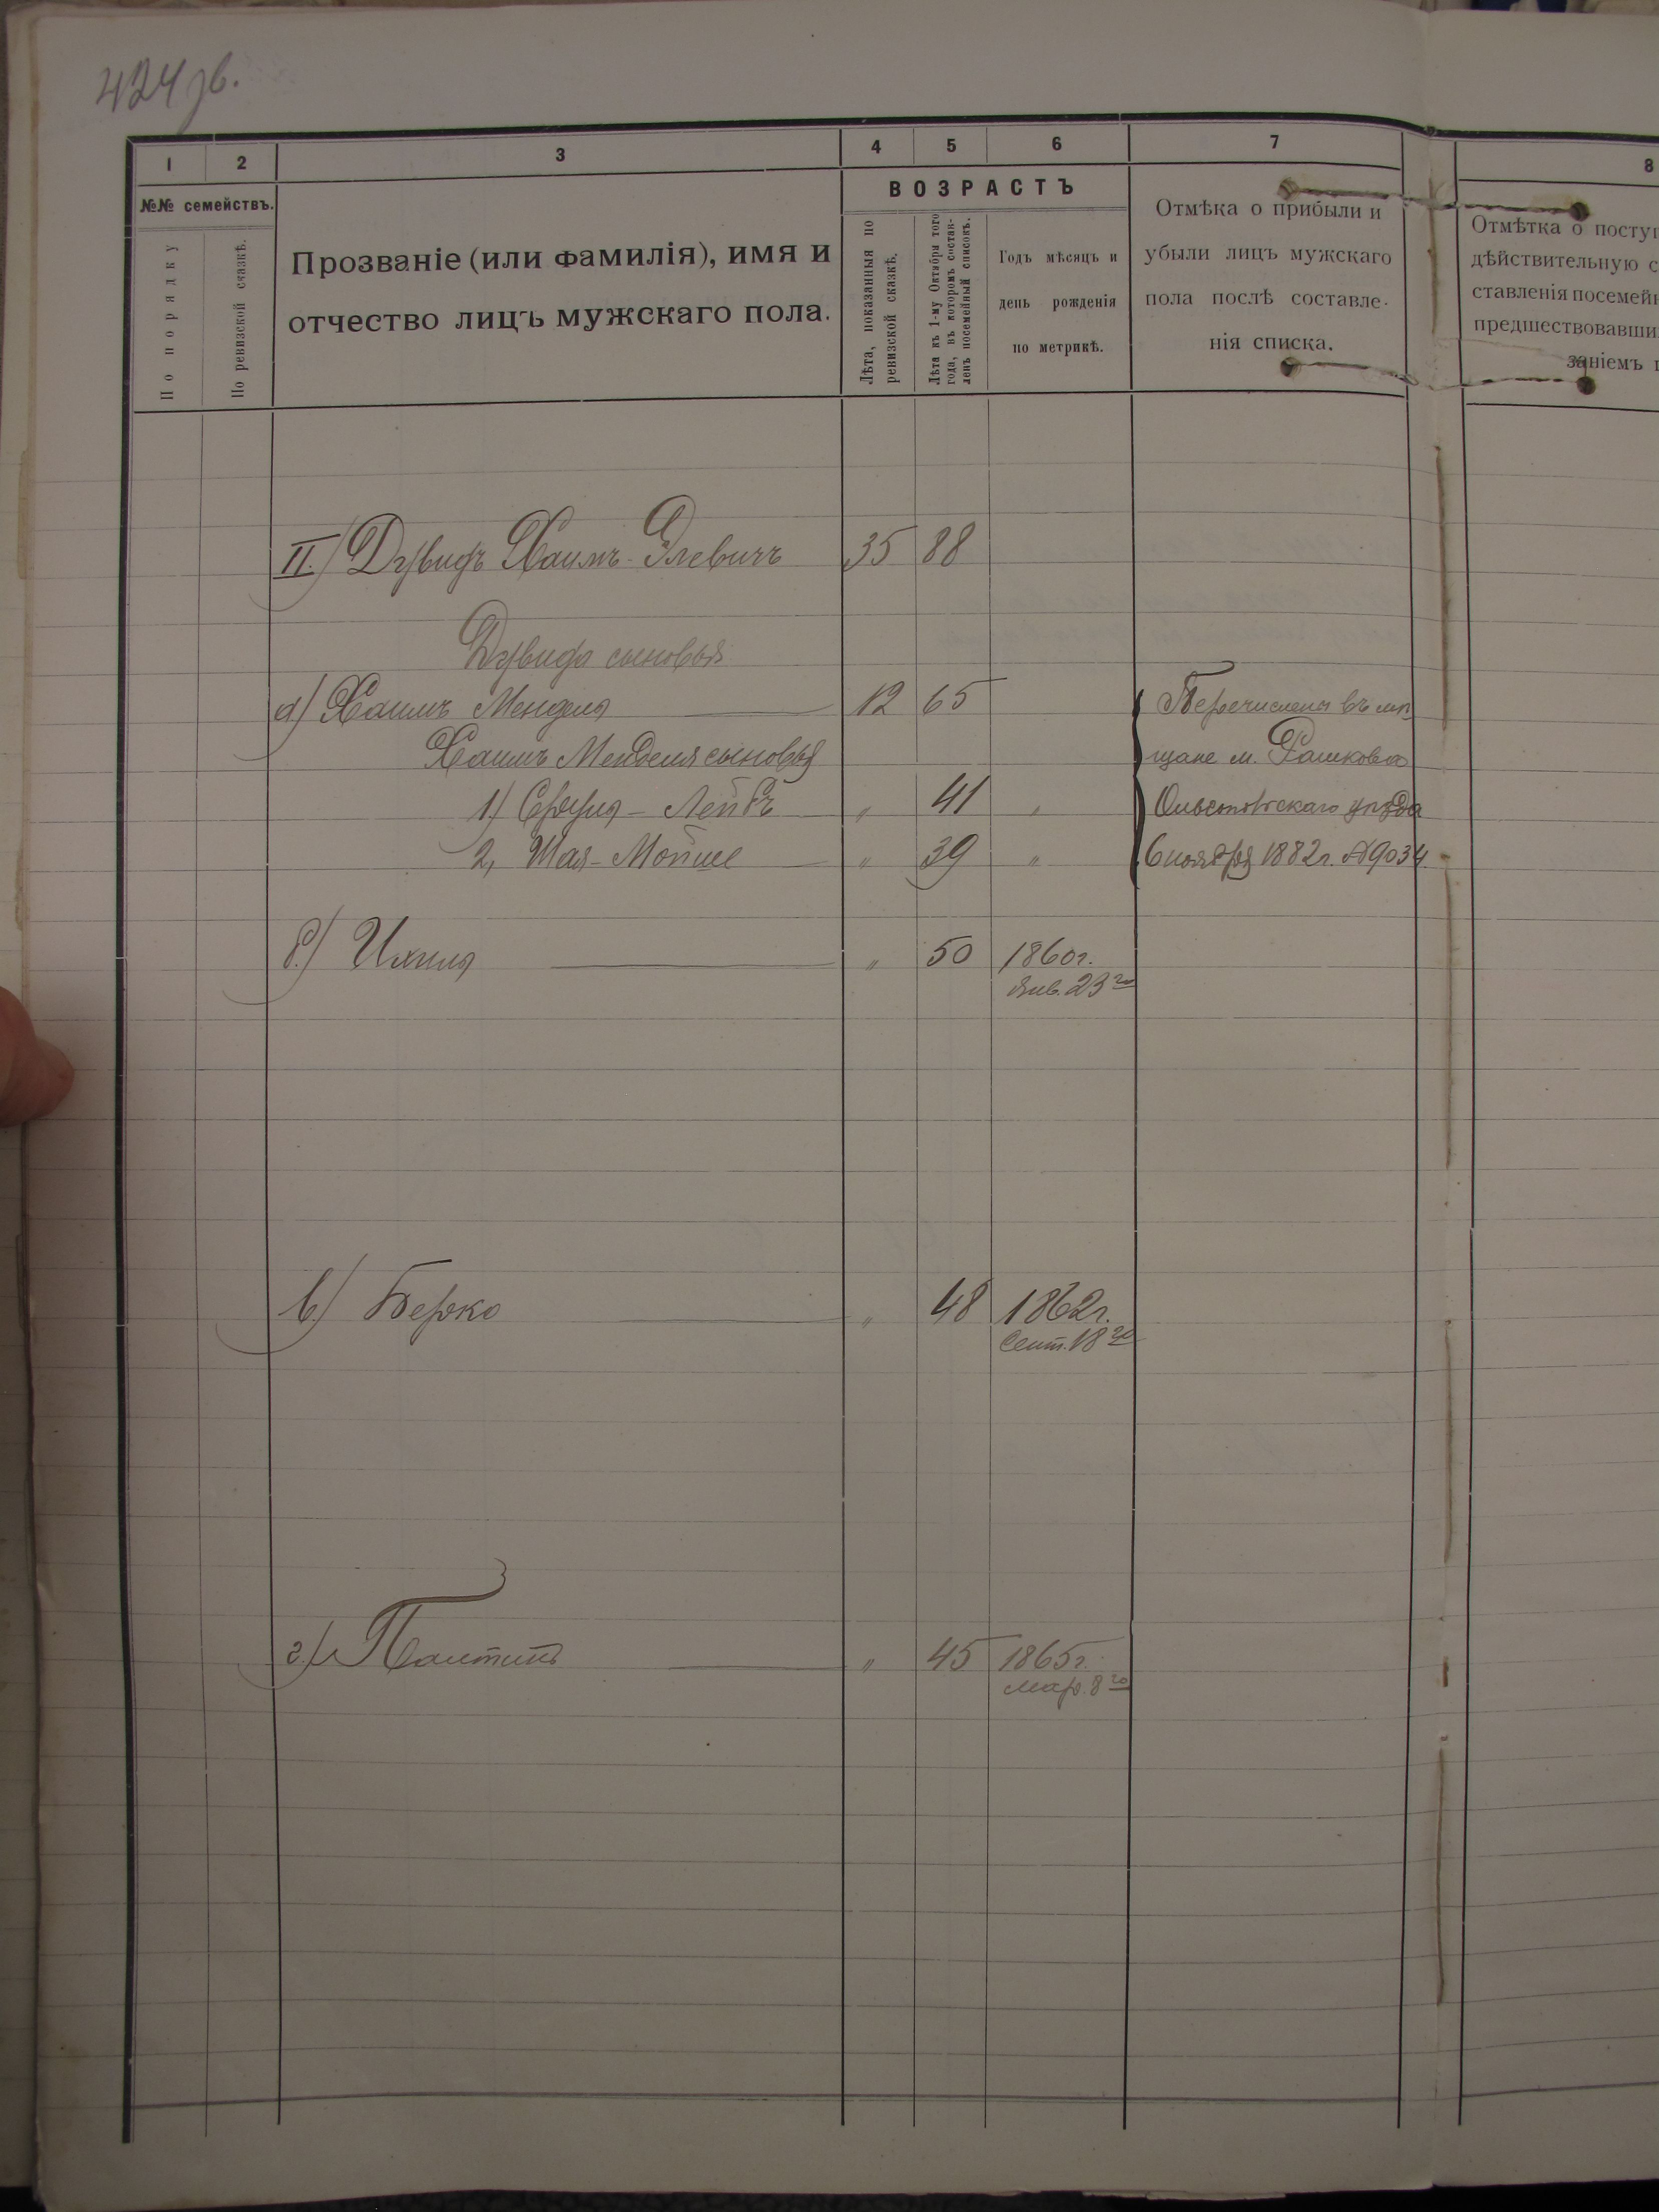 424 зв.
1 2 3 4 5 6 7 8
№№ семействъ.
По порядку
По ревизской сказкѣ.
Прозваніе (или фамилія), имя и
отчество лицъ мужскаго пола.
ВОЗРАСТЪ
Лѣта, показанныя по
ревизской сказкѣ.
Лѣта къ 1-му Октября того
года, въ которомъ состав-
ленъ посемейный списокъ.
Годъ мѣсяцъ и
день рожденія
по метрикѣ.
Отмѣка о прибыли и
убыли лицъ мужскаго
пола послѣ составле-
нія списка.
Отмѣтка о посту
дѣйствительную с
ставленія посемей
предшествовавши
заніемъ
II.) Дувидъ Хаимъ-Элевичъ 35 88
Дувида сыновья
а) Хаимъ Мендель 12 65 Перечислены въ мѣ
Хаимъ Менделя сыновья щане м. Рашкова
1) Сруля-Лейбъ " 41 " Ольгопольскаго уѣзда
2, Шая-Мойше " 39 " 6 ноября 1882 г. №9034
б.) Ихиль " 50 1860 г.
Янв. 23го
в.) Берко " 48 1862 г.
Сент. 18го
г.) " 45 1865 г.
Мар. 8го